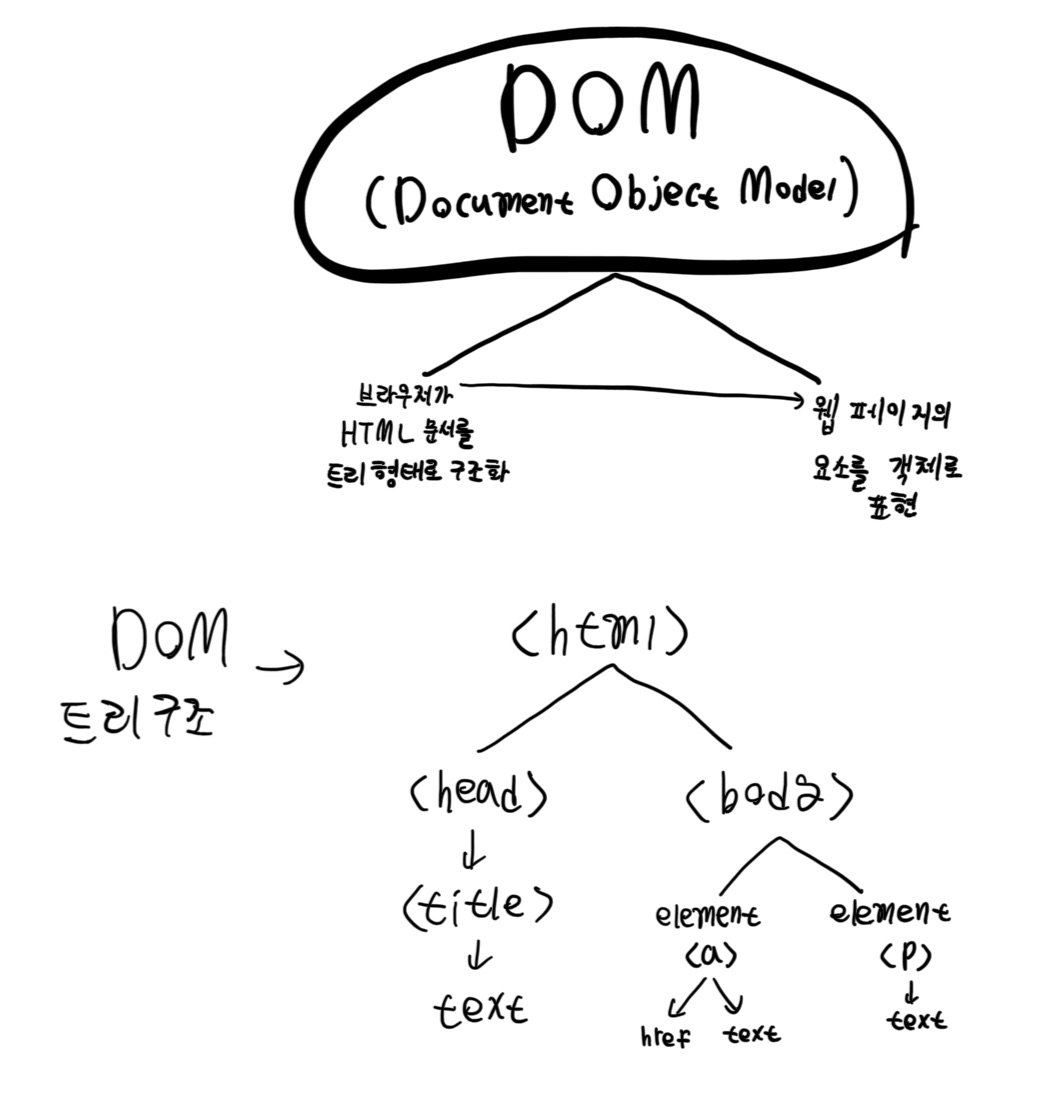 DOM
(Document Object Model)
브라우저가
HTML 문서를
트리 형태로 구조화
웹 페이지의
요소를 객체로
표현
DOM
트리 구조
<html>
<head>
<body>
<title>
text
element
<a>
href
text
element
<p>
text